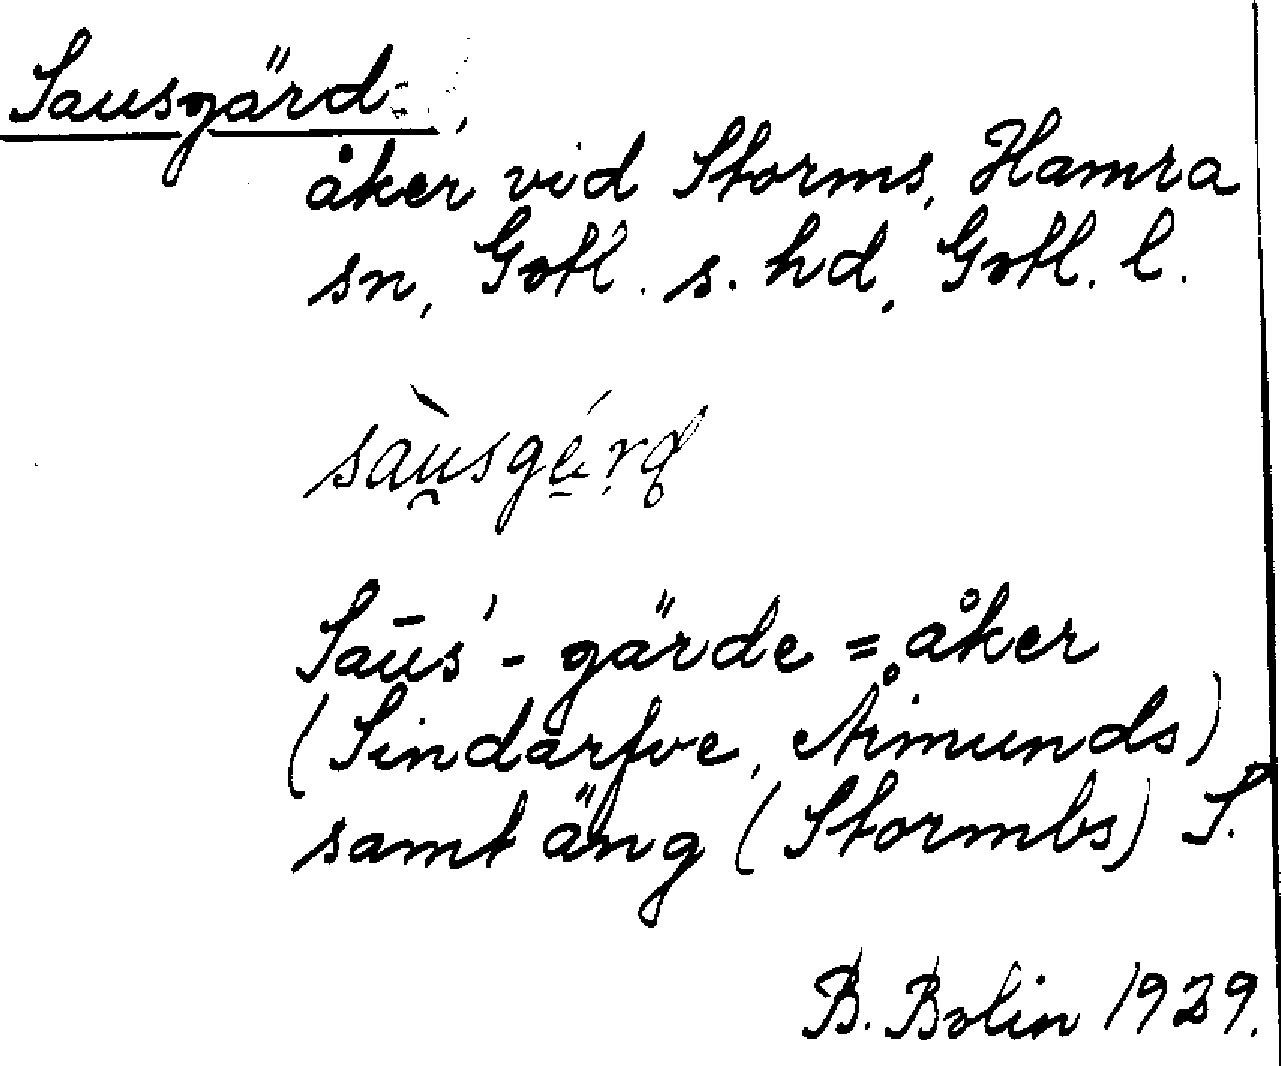 Sausgärd,
åker vid Storms, Hamra
sn, Gotl. s. hd, Gotl. l.
sàu̯sgé̠rd
Saūs' - gärde = åker
(Sindarfve, Åimunds)
samt äng (Stormbs) S.
B. Bolin 1929.